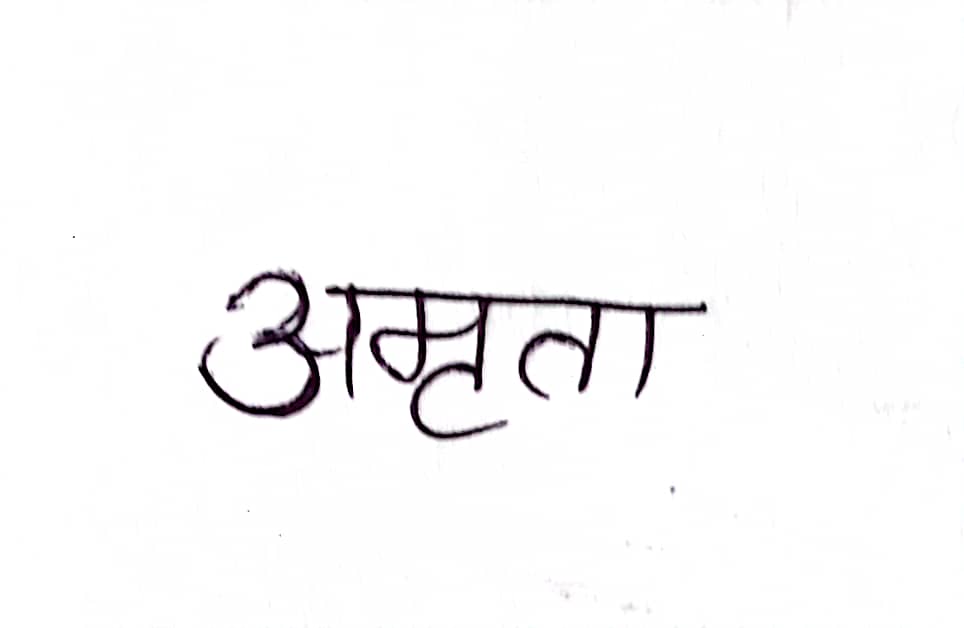 अमृता